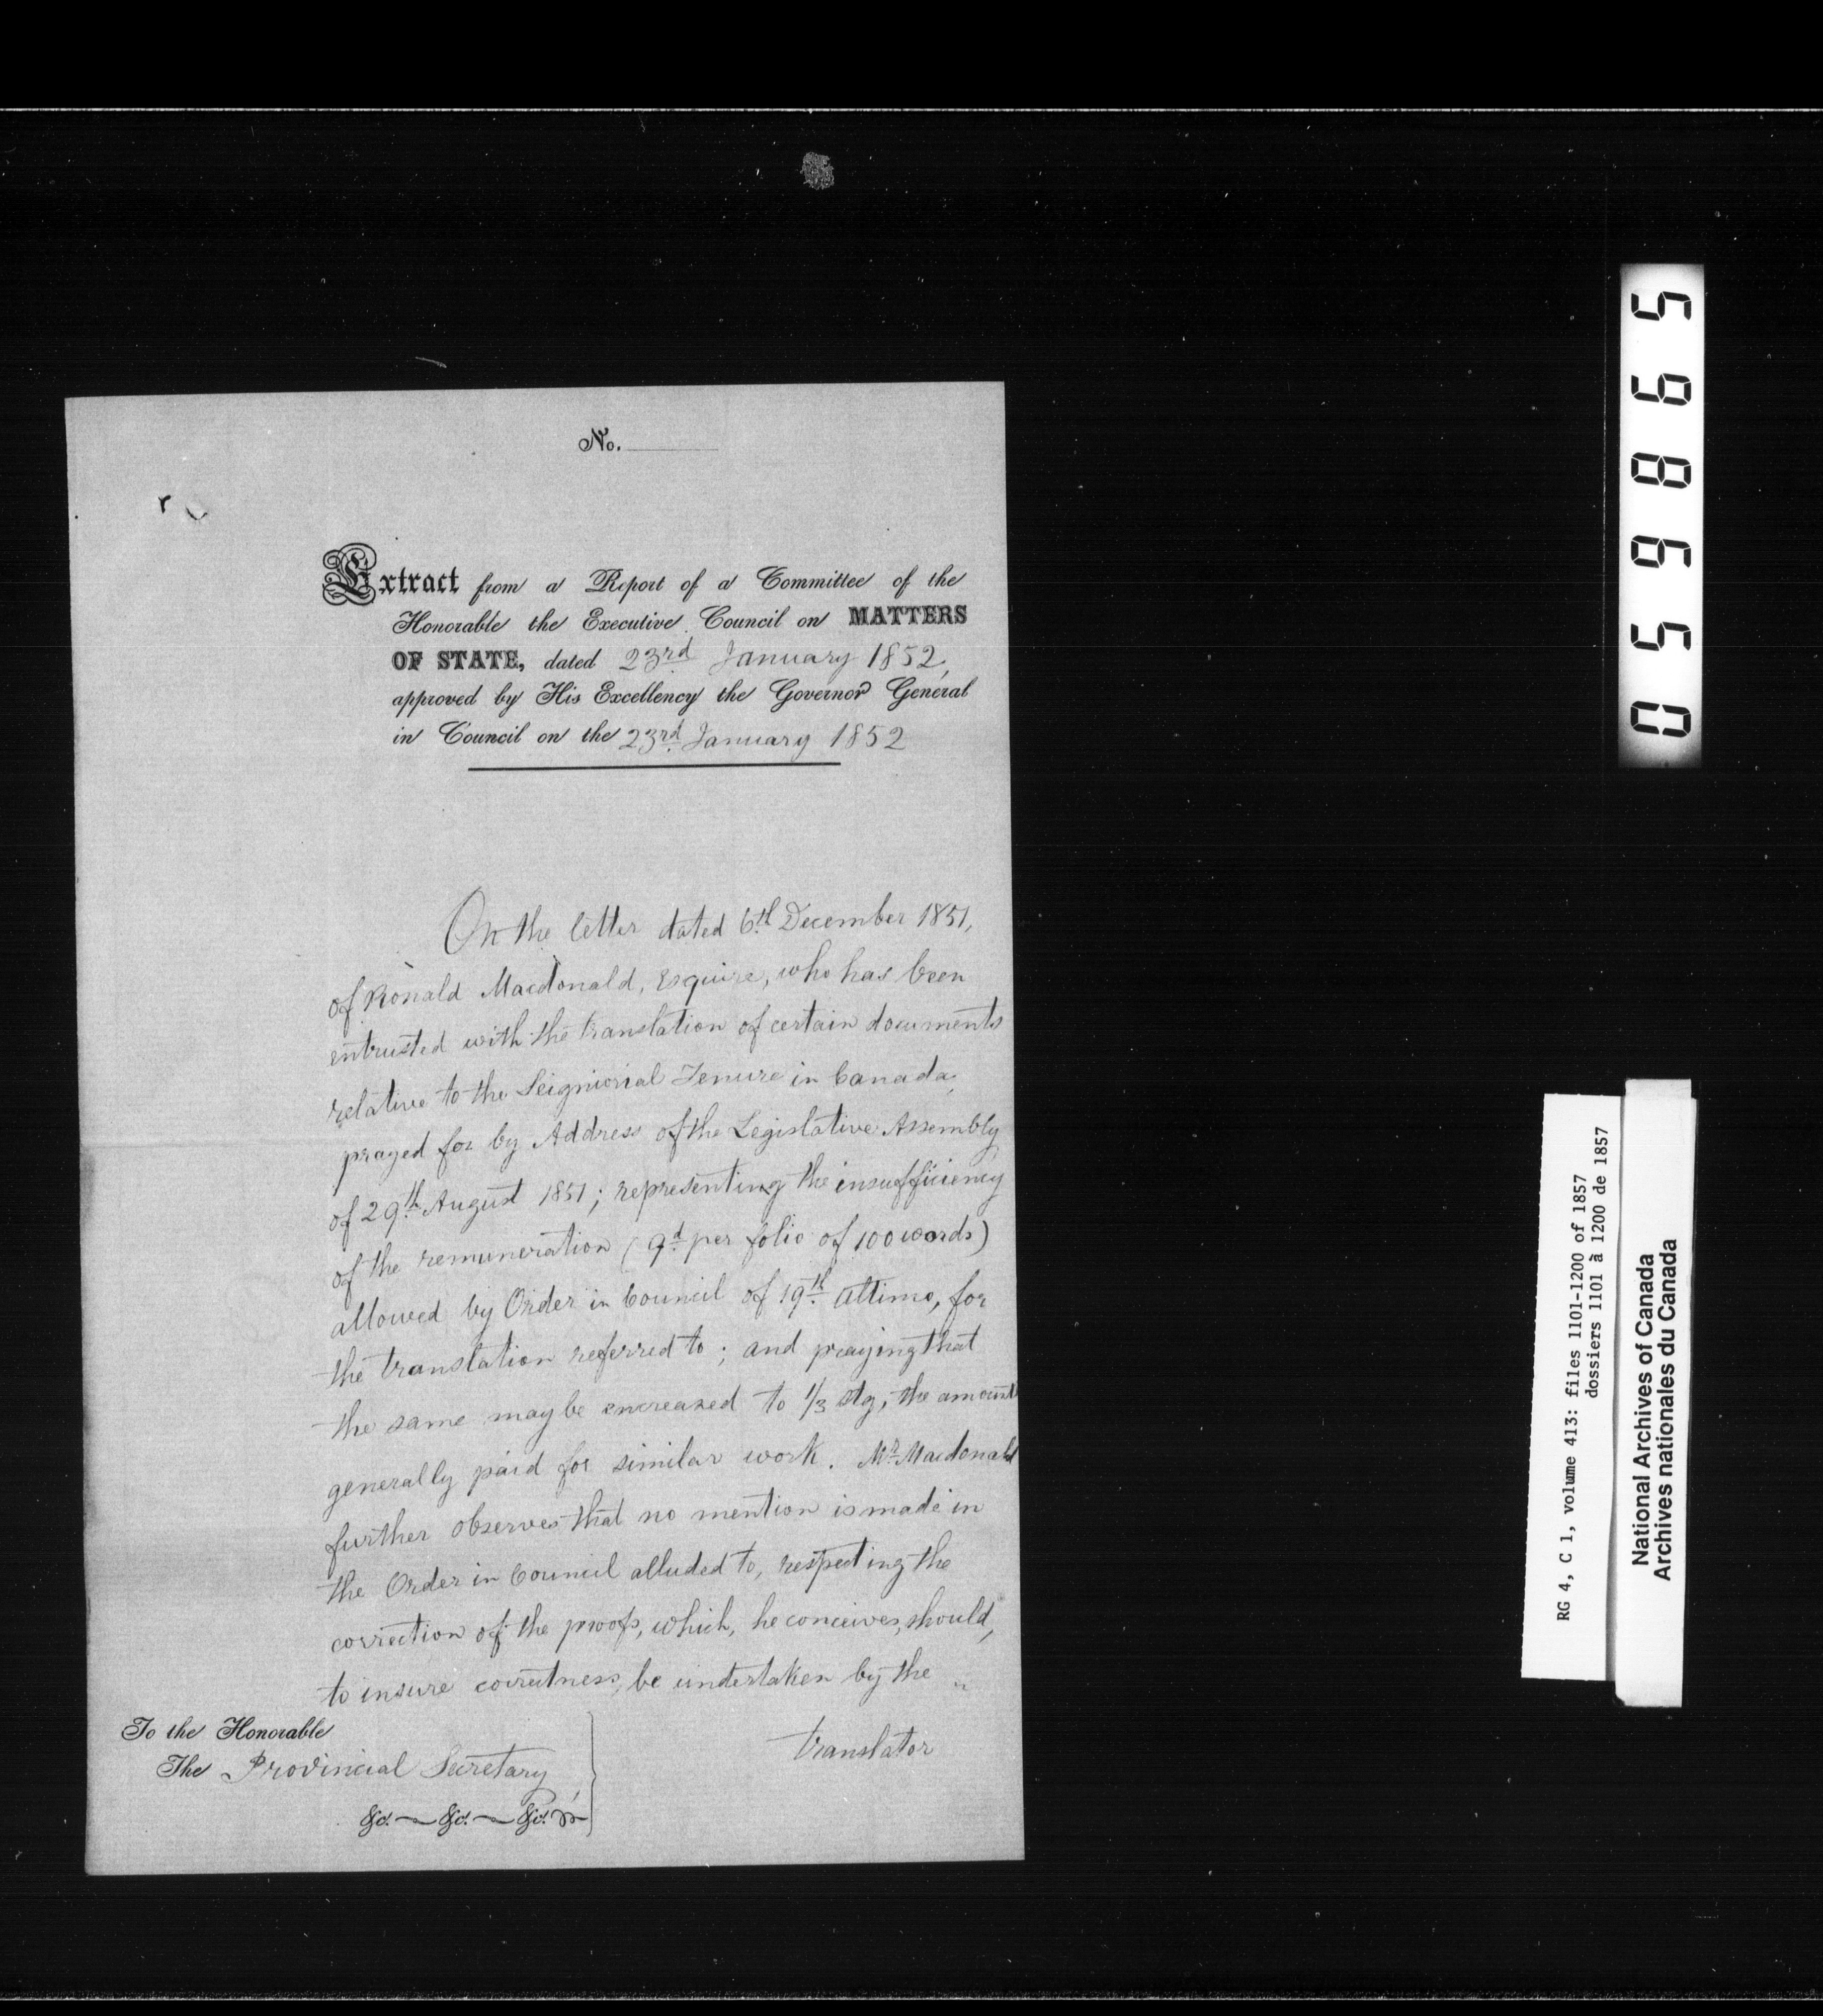 No.
Extract from a Report of a Committee of the
Honorable the Executive Council on MATTERS
OF STATE, dated 23rd January 1852,
approved by His Excellency the Governor General
in Council on the 23rd January 1852
On the letter dated 6th December 1851,
of Ronald Macdonald, Esquire, who has been
entrusted with the translation of certain documents
relative to the Seigniorial Tenure in Canada,
prayed for by Address of the Legislative Assembly
of 29th August 1851; representing the insufficiency
of the remuneration (9d per folio of 100 words)
allowed by Order in Council of 19th ultimo, for
the translation referred to; and praying that
the same may be encreased to 1/3 stg, the amount
generally paid for similar work. Mr Macdonald
further observes that no mention is made in
the Order in Council alluded to, respecting the
correction of the proofs, which, he conceives, should,
to insure correctness, be undertaken by the
translator
To the Honorable
The Provincial Secretary
&c. &c. &c.
059865
RG 4, C 1, volume 413: files 1101-1200 of 1857
dossiers 1101 à 1200 de 1857
National Archives of Canada
Archives nationales du Canada